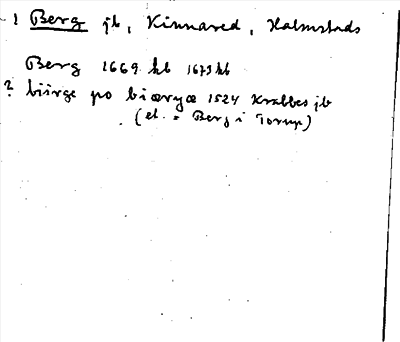 1 Berg jb, Kinnared, Halmstads
Berg 1669 hb 1673 hb
? biirge po biæryæ 1524 Krabbes jb
(el. = Berg i Torup)